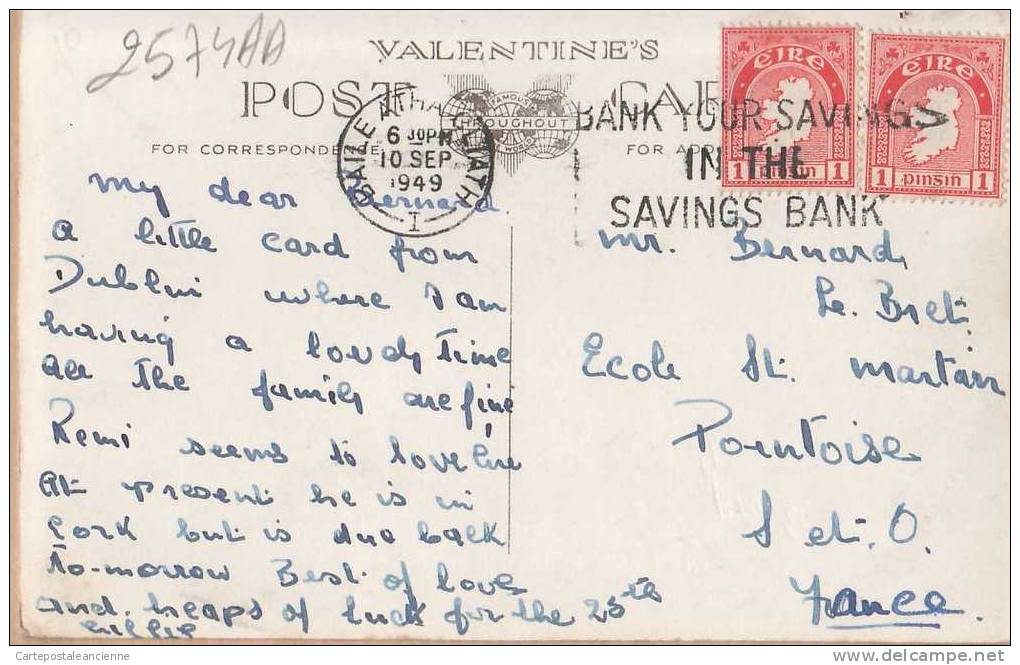 2574AA
VALENTINE'S
POST CARD
FAMOUS
THROUGHOUT
WORLD
FOR CORRESPONDENCE
FOR ADDRESS
BAILE ÁTHA CLIATH
6 30PM
10 SEP
1949
I
BANK YOUR SAVINGS
IN THE
SAVINGS BANK
EIRE
1 pinsin 1
EIRE
1 pinsin 1
My dear Bernard.
A little card from
Dublin where I am
having a lovely time
All the family are fine
Remi seems to love
At present he is in
Cork but is due back
to-morrow Best of love
and heaps of luck for the 25th
Mr. Bernard
Le Bret
Ecole St. Martain
Pointoise
S et. O.
France
Cartepostaleancienne
www.delcampe.net